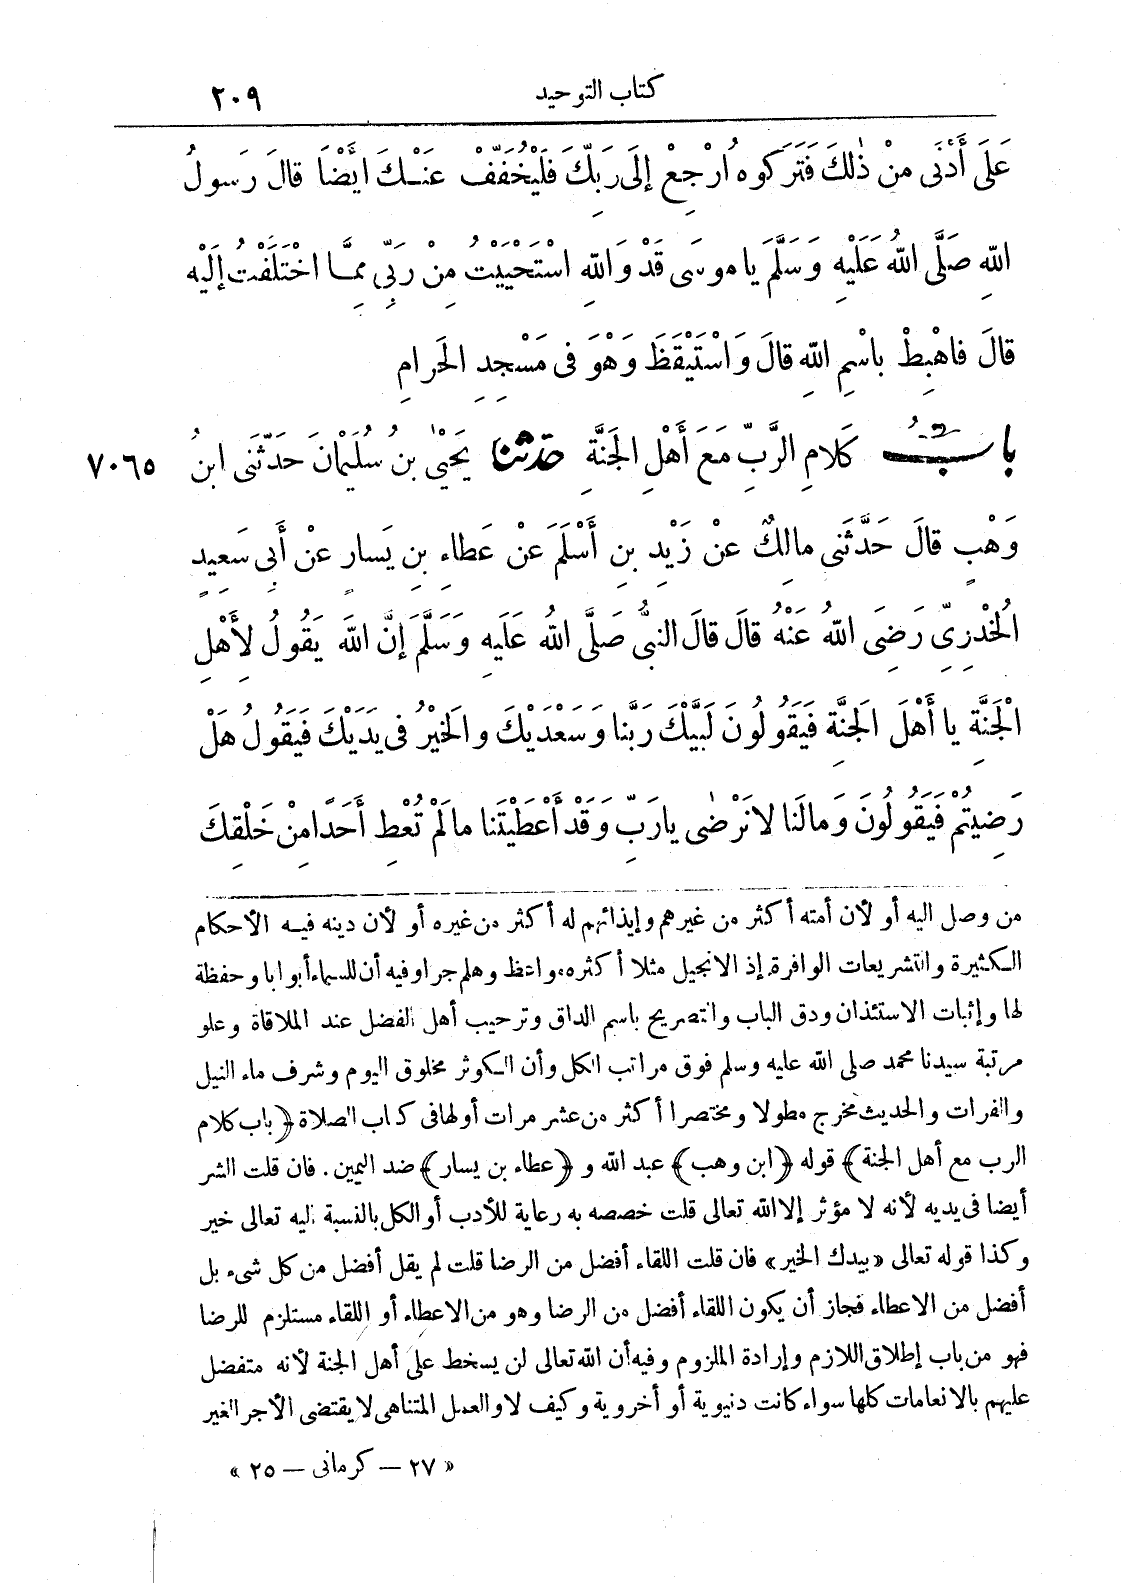 كتاب التوحيد ٢٠٩
عَلَى أَدْنَى مِنْ ذٰلِكَ فَتَرَكُوهُ ارْجِعْ إِلَى رَبِّكَ فَلْيُخَفِّفْ عَنْكَ أَيْضًا قالَ رَسولُ
اللهِ صَلَّى اللهُ عَلَيْهِ وَسَلَّمَ يا موسَى قَدْ وَاللهِ اسْتَحْيَيْتُ مِنْ رَبِّى مِمَّا اخْتَلَفْتُ إلَيْهِ
قالَ فاهْبِطْ باسْمِ اللهِ قالَ وَاسْتَيْقَظَ وَهْوَ فى مَسْجِدِ الحَرامِ
بابُ كَلامِ الرَّبِّ مَعَ أَهْلِ الجَنَّةِ حدّثنا يَحْيٰى بنُ سُلَيْمانَ حَدَّثَنى ابنُ ٧٠٦٥
وَهْبٍ قالَ حَدَّثَنى مالِكٌ عنْ زَيْدِ بنِ أَسْلَمَ عَنْ عَطاءِ بنِ يَسارٍ عنْ أَبى سَعيدٍ
الخُدْرِىِّ رَضِىَ اللهُ عَنْهُ قالَ قالَ النبىُّ صَلَّى اللهُ عَلَيهِ وَسَلَّمَ إنَّ اللهَ يَقُولُ لِأَهْلِ
الْجَنَّةِ يا أَهْلَ الجَنَّةِ فَيَقُولُونَ لَبَّيْكَ رَبَّنا وَسَعْدَيْكَ والخَيْرُ فى يَدَيْكَ فَيَقُولُ هَلْ
رَضِيتُمْ فَيَقُولُونَ وَمالَنا لا نَرْضٰى يارَبِّ وَقَدْ أَعْطَيْتَنا مالَمْ تُعْطِ أَحَدًا مِنْ خَلْقِكَ
من وصل اليه أو لأن أمته أكثر من غيرهم وإيذائهم له أكثر من غيره أو لأن دينه فيه الأحكام
الكثيرة والتشريعات الوافرة إذ الانجيل مثلا أكثره مواعظ وهلم جرا وفيه أن للسماء أبوابا وحفظة
لها وإثبات الاستئذان ودق الباب والتصريح باسم الداق وترحيب أهل الفضل عند الملاقاة وعلو
مرتبة سيدنا محمد صلى الله عليه وسلم فوق مراتب الكل وأن الكوثر مخلوق اليوم وشرف ماء النيل
والفرات والحديث مخرج مطولا ومختصرا أكثر من عشر مرات أولها فى كتاب الصلاة ﴿باب كلام
الرب مع أهل الجنة﴾ قوله ﴿ابن وهب﴾ عبد الله و ﴿عطاء بن يسار﴾ ضد اليمين . فان قلت الشر
أيضا فى يديه لأنه لا مؤثر إلا الله تعالى قلت خصصه به رعاية للأدب أو الكل بالنسبة اليه تعالى خير
وكذا قوله تعالى «بيدك الخير» فان قلت اللقاء أفضل من الرضا قلت لم يقل أفضل من كل شىء بل
أفضل من الاعطاء فجاز أن يكون اللقاء أفضل من الرضا وهو من الاعطاء أو اللقاء مستلزم للرضا
فهو من باب إطلاق اللازم وإرادة الملزوم وفيه أن الله تعالى لن يسخط على أهل الجنة لأنه متفضل
عليهم بالانعامات كلها سواء كانت دنيوية أو أخروية وكيف لا والعمل المتناهى لا يقتضى الأجر الغير
« ٢٧ - كرمانى - ٢٥ »